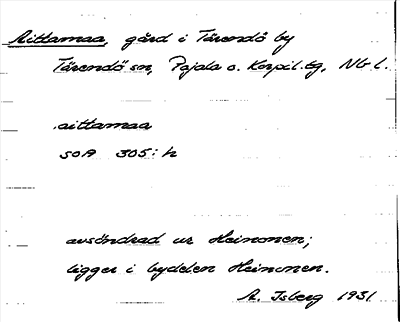 Aittamaa, gård i Tärendö by
Tärendö sn, Pajala o. Korpil. tg, Nb l.
aittamaa
SOA 305: h
avsöndrad ur Heinonen;
ligger i bydelen Heinonen.
A. Isberg 1931